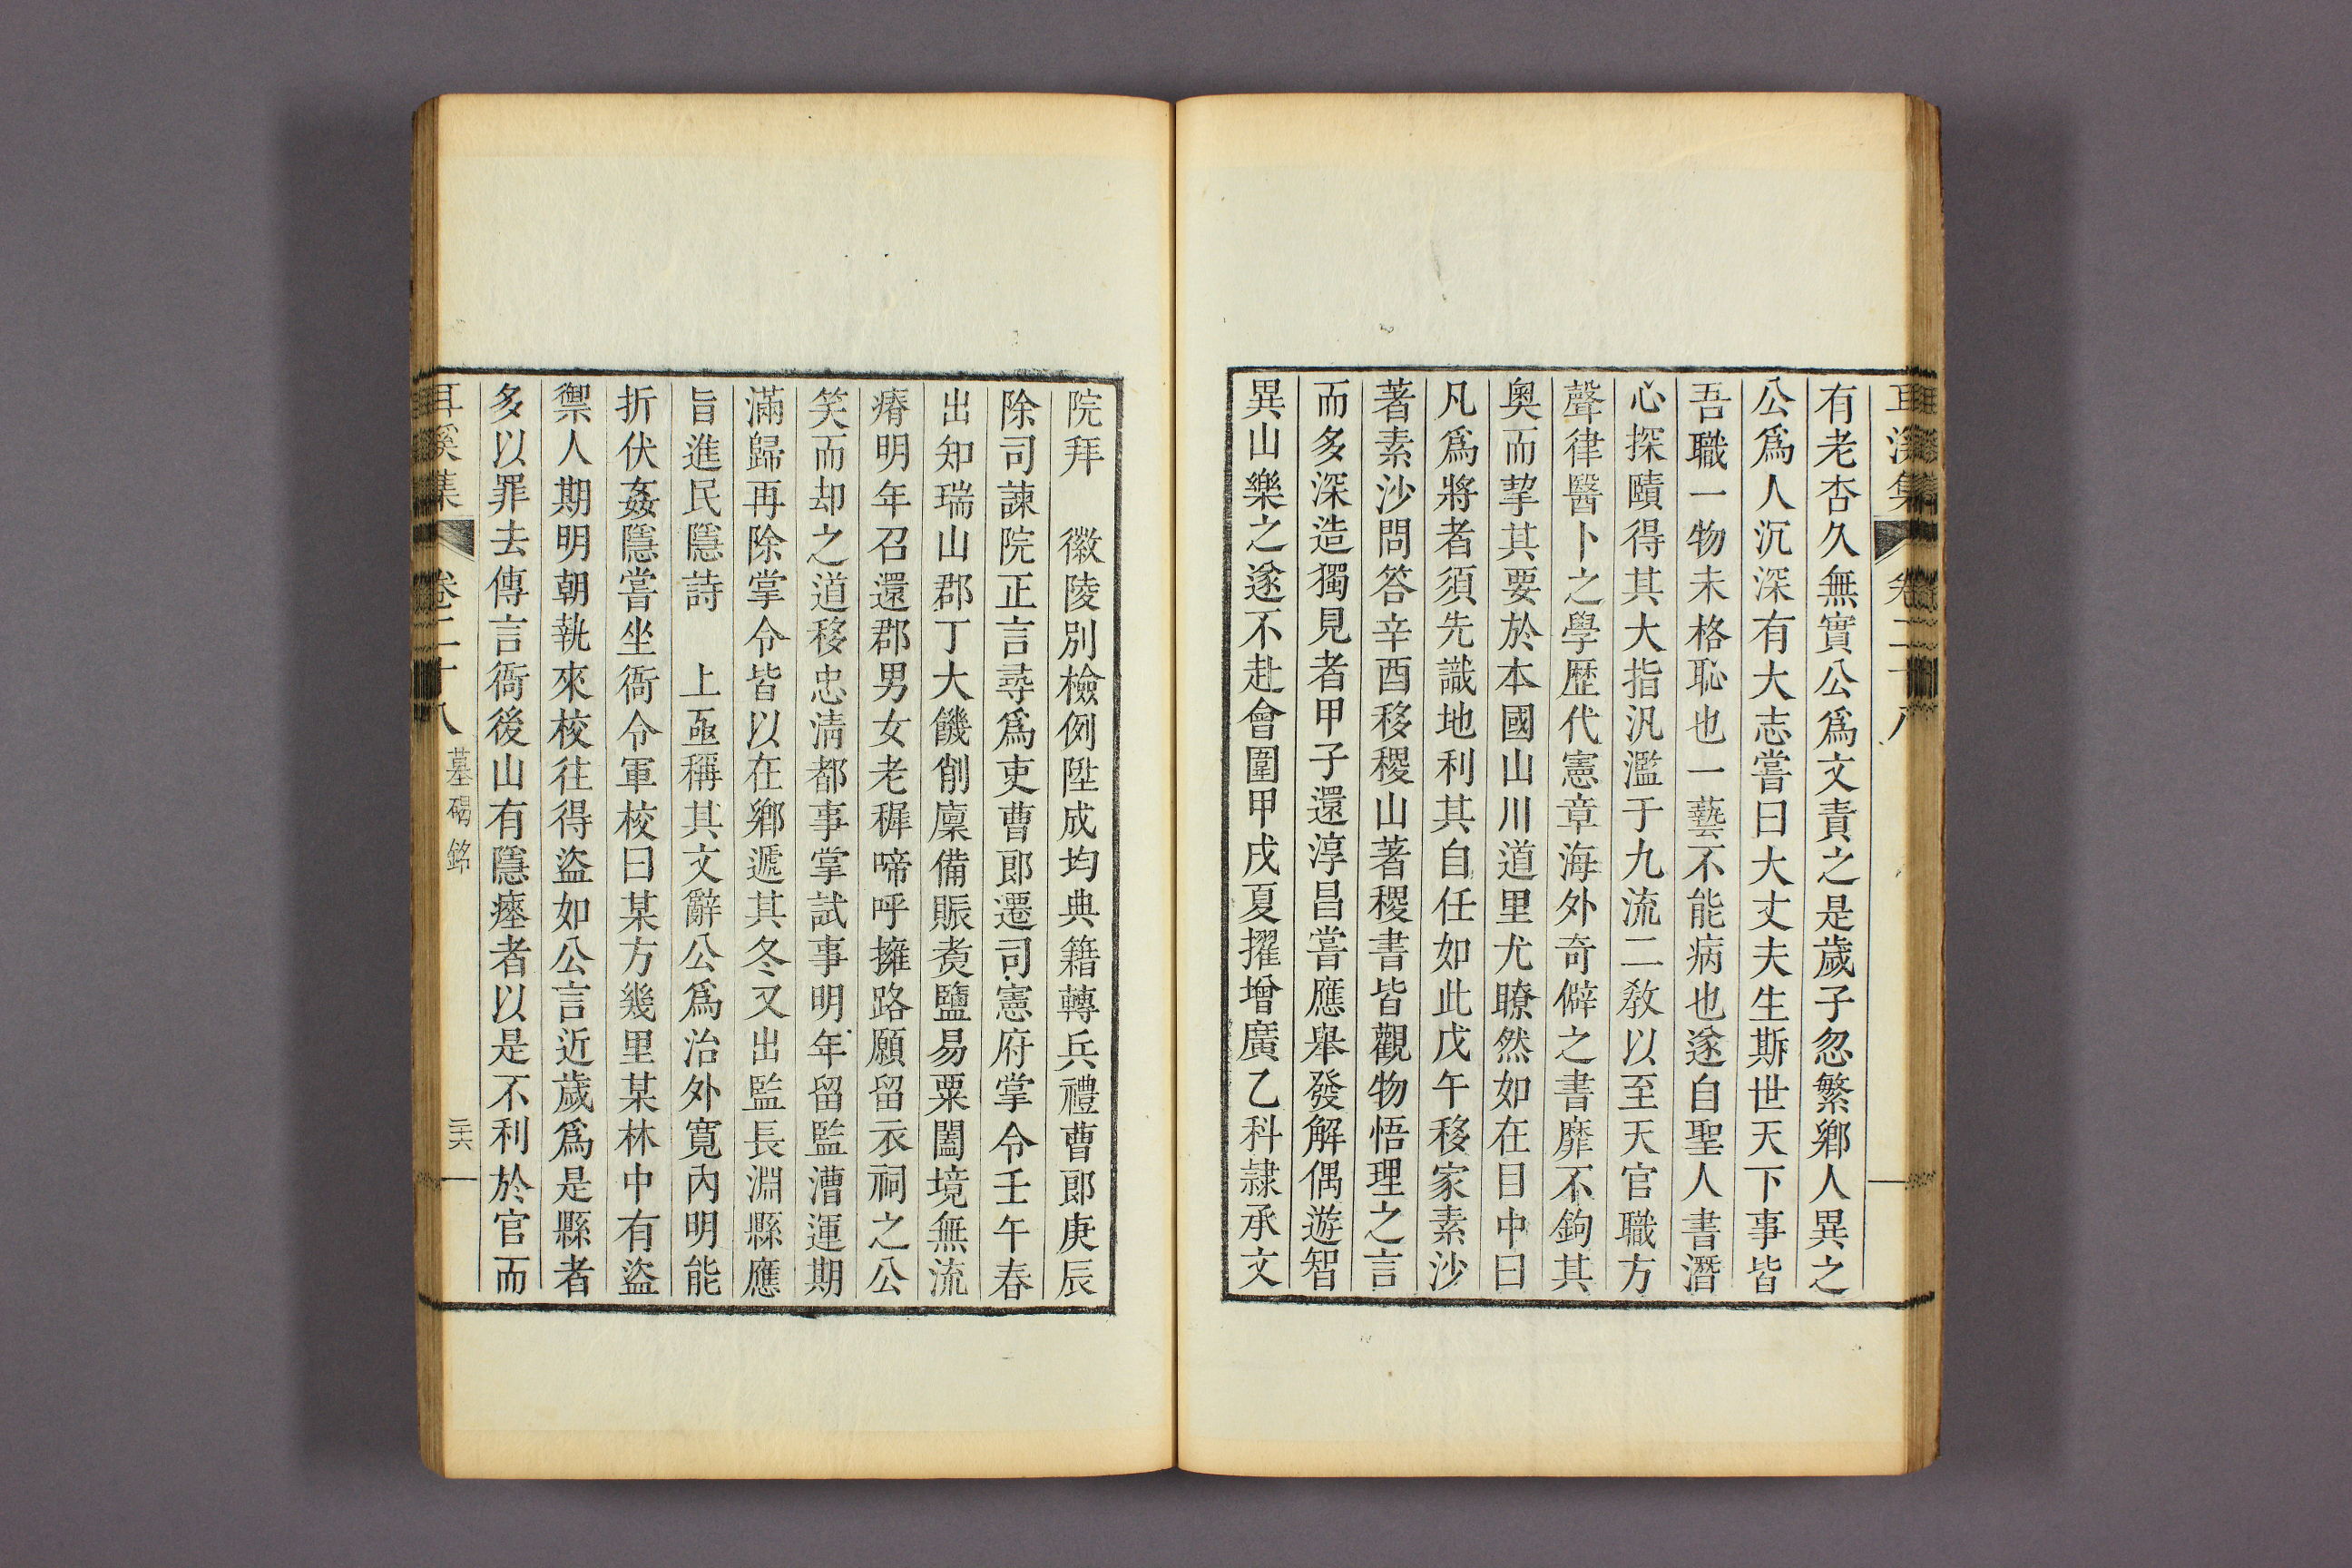 耳溪集 卷二十八
有老杏久無實公爲文責之是歲子忽繁鄕人異之
公爲人沉深有大志嘗曰大丈夫生斯世天下事皆
吾職一物未格恥也一藝不能病也遂自聖人書潛
心探賾得其大指汎濫于九流二敎以至天官職方
聲律醫卜之學歷代憲章海外奇僻之書靡不鉤其
奧而挈其要於本國山川道里尤瞭然如在目中曰
凡爲將者須先識地利其自任如此戊午移家素沙
著素沙問答辛酉移稷山著稷書皆觀物悟理之言
而多深造獨見者甲子還淳昌嘗應舉發解偶遊智
異山樂之遂不赴會圍甲戌夏擢增廣乙科隷承文
院拜 徽陵別檢例陞成均典籍轉兵禮曹郎庚辰
除司諫院正言尋爲吏曹郎遷司憲府掌令壬午春
出知瑞山郡丁大饑創廩備賑煑鹽易粟闔境無流
瘠明年召還郡男女老穉啼呼擁路願留衣祠之公
笑而却之道移忠淸都事掌試事明年留監漕運期
滿歸再除掌令皆以在鄕遞其冬又出監長淵縣應
旨進民隱詩 上亟稱其文辭公爲治外寬內明能
折伏姦隱嘗坐衙令軍校曰某方幾里某林中有盜
禦人期明朝執來校往得盜如公言近歲爲是縣者
多以罪去傳言衙後山有隱瘞者以是不利於官而
耳溪集 卷二十八 墓碣銘 三十六